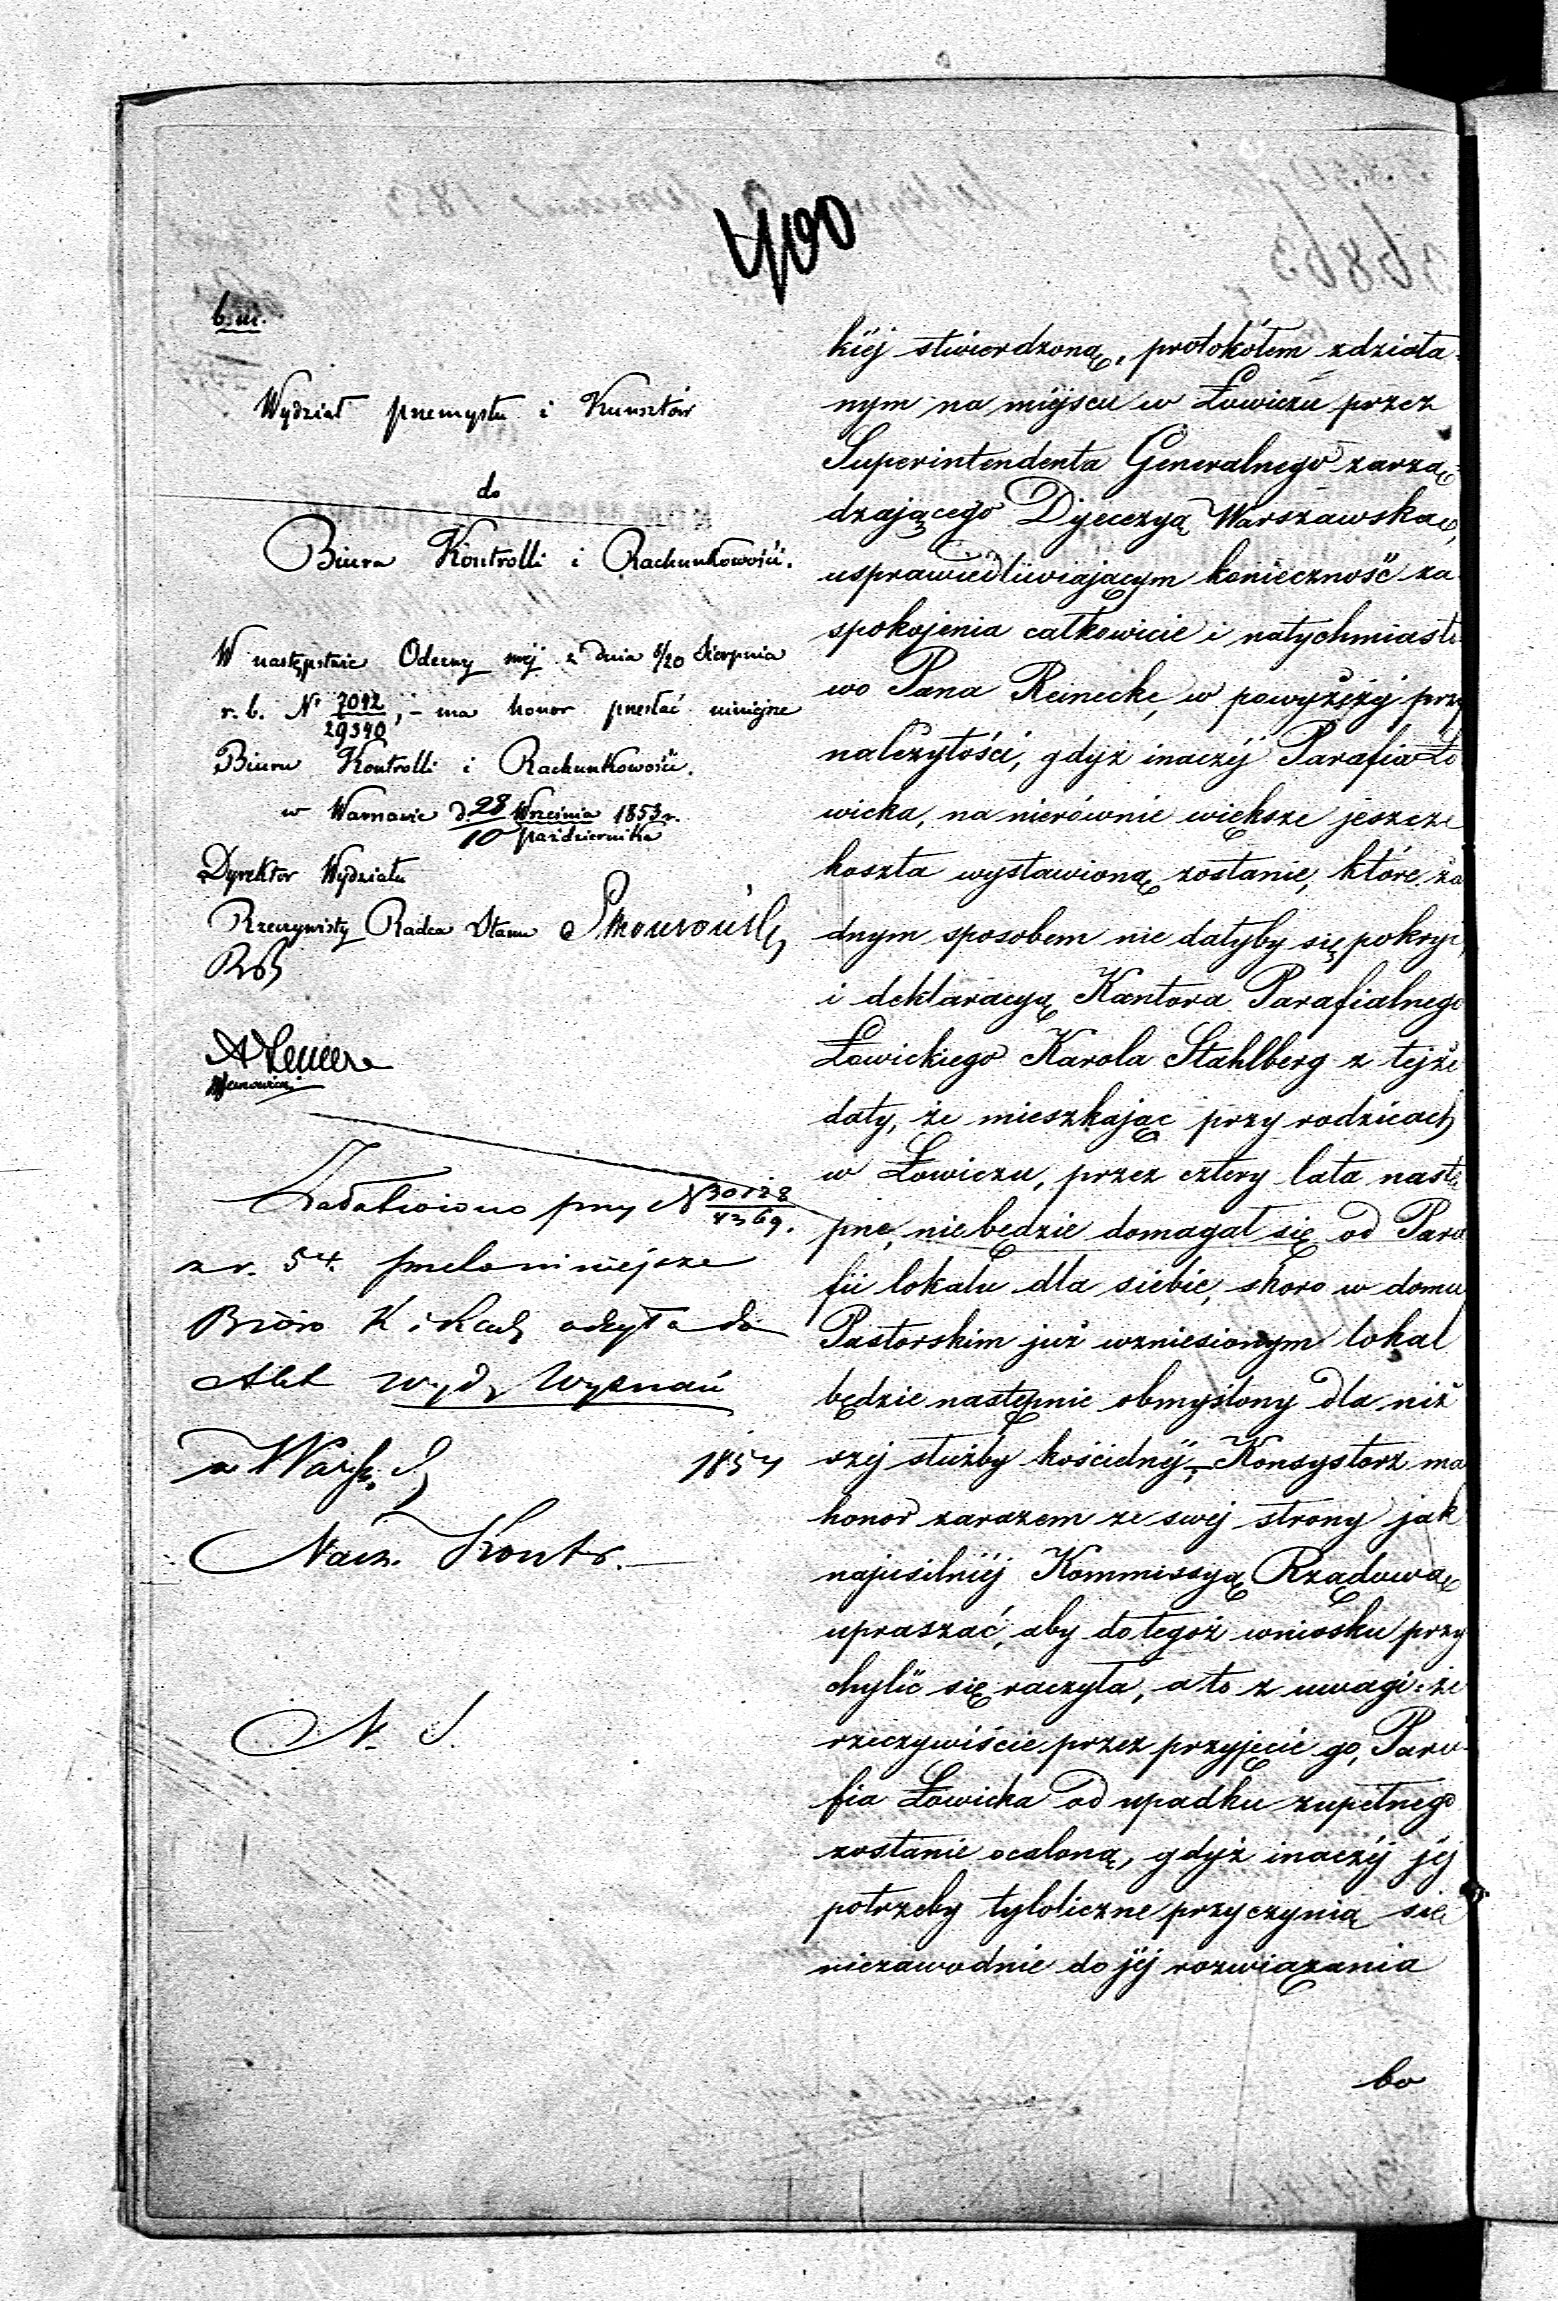 400
b. m.
Wydział przemysłu i Kunsztów
do
Biura Kontrolli i Rachunkowości.
W następstwie Odezwy swéj z dnia 8/20 Sierpnia
r. b. Nr 7042/29340, – ma honor przesłać niniejsze
Biuru Kontrolli i Rachunkowości.
w Warszawie d. 28 Września / 10 Października 1853 r.
Dyrektor Wydziału
Rzeczywisty Radca Stanu
Załatwiono przy N 30128/4369.
z r. 54. przeto niniejsze
Bióro K i Rach odsyła do
Akt Wydz Wyznań
w Warsz. d 1854
Nacz. Kontr.
N. S.
kiéj stwierdzoną, protokółem zdziała-
nym na miéjscu w Łowiczu przez
Superintendenta Generalnego zarzą-
dzającego Dyecezyą Warszawską,
usprawiedliwiającym konieczność za-
spokojenia całkowicie i natychmiasto
wo Pana Reinecke, w powyższéj przy
należytości, gdyż inaczéj Parafia Ło
wicka, na nierównie większe jeszcze
koszta wystawioną zostanie, które ża
dnym sposobem nie dałyby się pokryć,
i deklaracyą Kantora Parafialnego
Łowickiego Karola Stahlberg z tejże
daty, że mieszkając przy rodzicach
w Łowiczu, przez cztery lata nastę
pne, nie będzie domagał się od Para
fii lokalu dla siebie, skoro w domu
Pastorskim już wzniesionym lokal
będzie następnie obmyślony dla niż
széj służby kościelnéj, – Konsystorz ma
honor zarazem ze swéj strony jak
najusilniéj Kommissyą Rządową
upraszać, aby do tegoż wniosku przy
chylić się raczyła, a to z uwagi: że
rzeczywiście przez przyjęcie go, Para
fia Łowicka od upadku zupełnego
zostanie ocaloną, gdyż inaczéj jéj
potrzeby tyloliczne przyczynią się
niezawodnie do jéj rozwiązania
bo